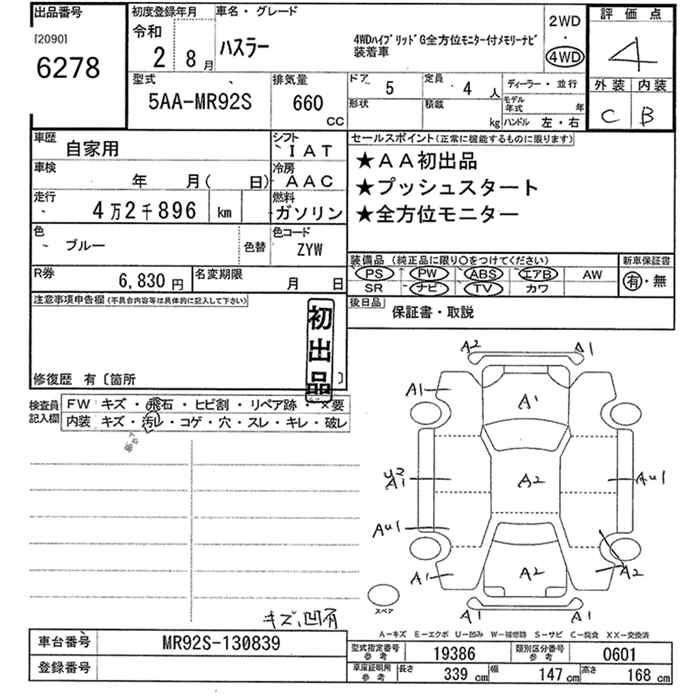 出品番号
[2090]
6278
初度登録年月
令和
2 8月
車名・グレード
ハスラー
4WDハイブリッドG全方位モニター付メモリーナビ
装着車
2WD
・
4WD
評価点
4
外装 内装
C B
型式
5AA-MR92S
排気量
660
CC
ドア 5
定員 4 人
形状
積載 kg
ディーラー・並行
モデル年式 年
ハンドル 左・右
車歴
自家用
シフト
IAT
車検
年 月( 日)
冷房
AAC
走行
4万2千896 km
燃料
ガソリン
色
ブルー
色替
色コード
ZYW
R券
6,830円
名変期限
月 日
セールスポイント(正常に機能するものに限ります)
★AA初出品
★プッシュスタート
★全方位モニター
装備品(純正品に限り○をつけてください)
PS PW ABS エアB AW
SR ナビ TV カワ
新車保証書
有・無
後日品
保証書・取説
注意事項申告欄(不具合内容等は具体的に記入して下さい)
初出品
修復歴 有〔箇所 〕
検査員
記入欄
FW キズ・飛石・ヒビ割・リペア跡・×要
内装 キズ・汚レ・コゲ・穴・スレ・キレ・破レ
A2 A1
A1 A1
U2
A1 A2 AU1
AU1
A1 A2 A2
A1 A1
スペア
キズ、凹有
A－キズ E－エクボ U－凹み W－補修跡 S－サビ C－腐食 XX－交換済
車台番号 MR92S-130839
登録番号
型式指定番号
参考
19386
類別区分番号
参考
0601
車庫証明用
参考
長さ 339 cm
幅 147 cm
高さ 168 cm